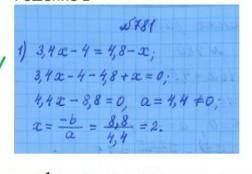 №781
1) 3,4x - 4 = 4,8 - x;
3,4x - 4 - 4,8 + x = 0;
4,4x - 8,8 = 0, a = 4,4 ≠ 0;
x = -b/a = 8,8/4,4 = 2.